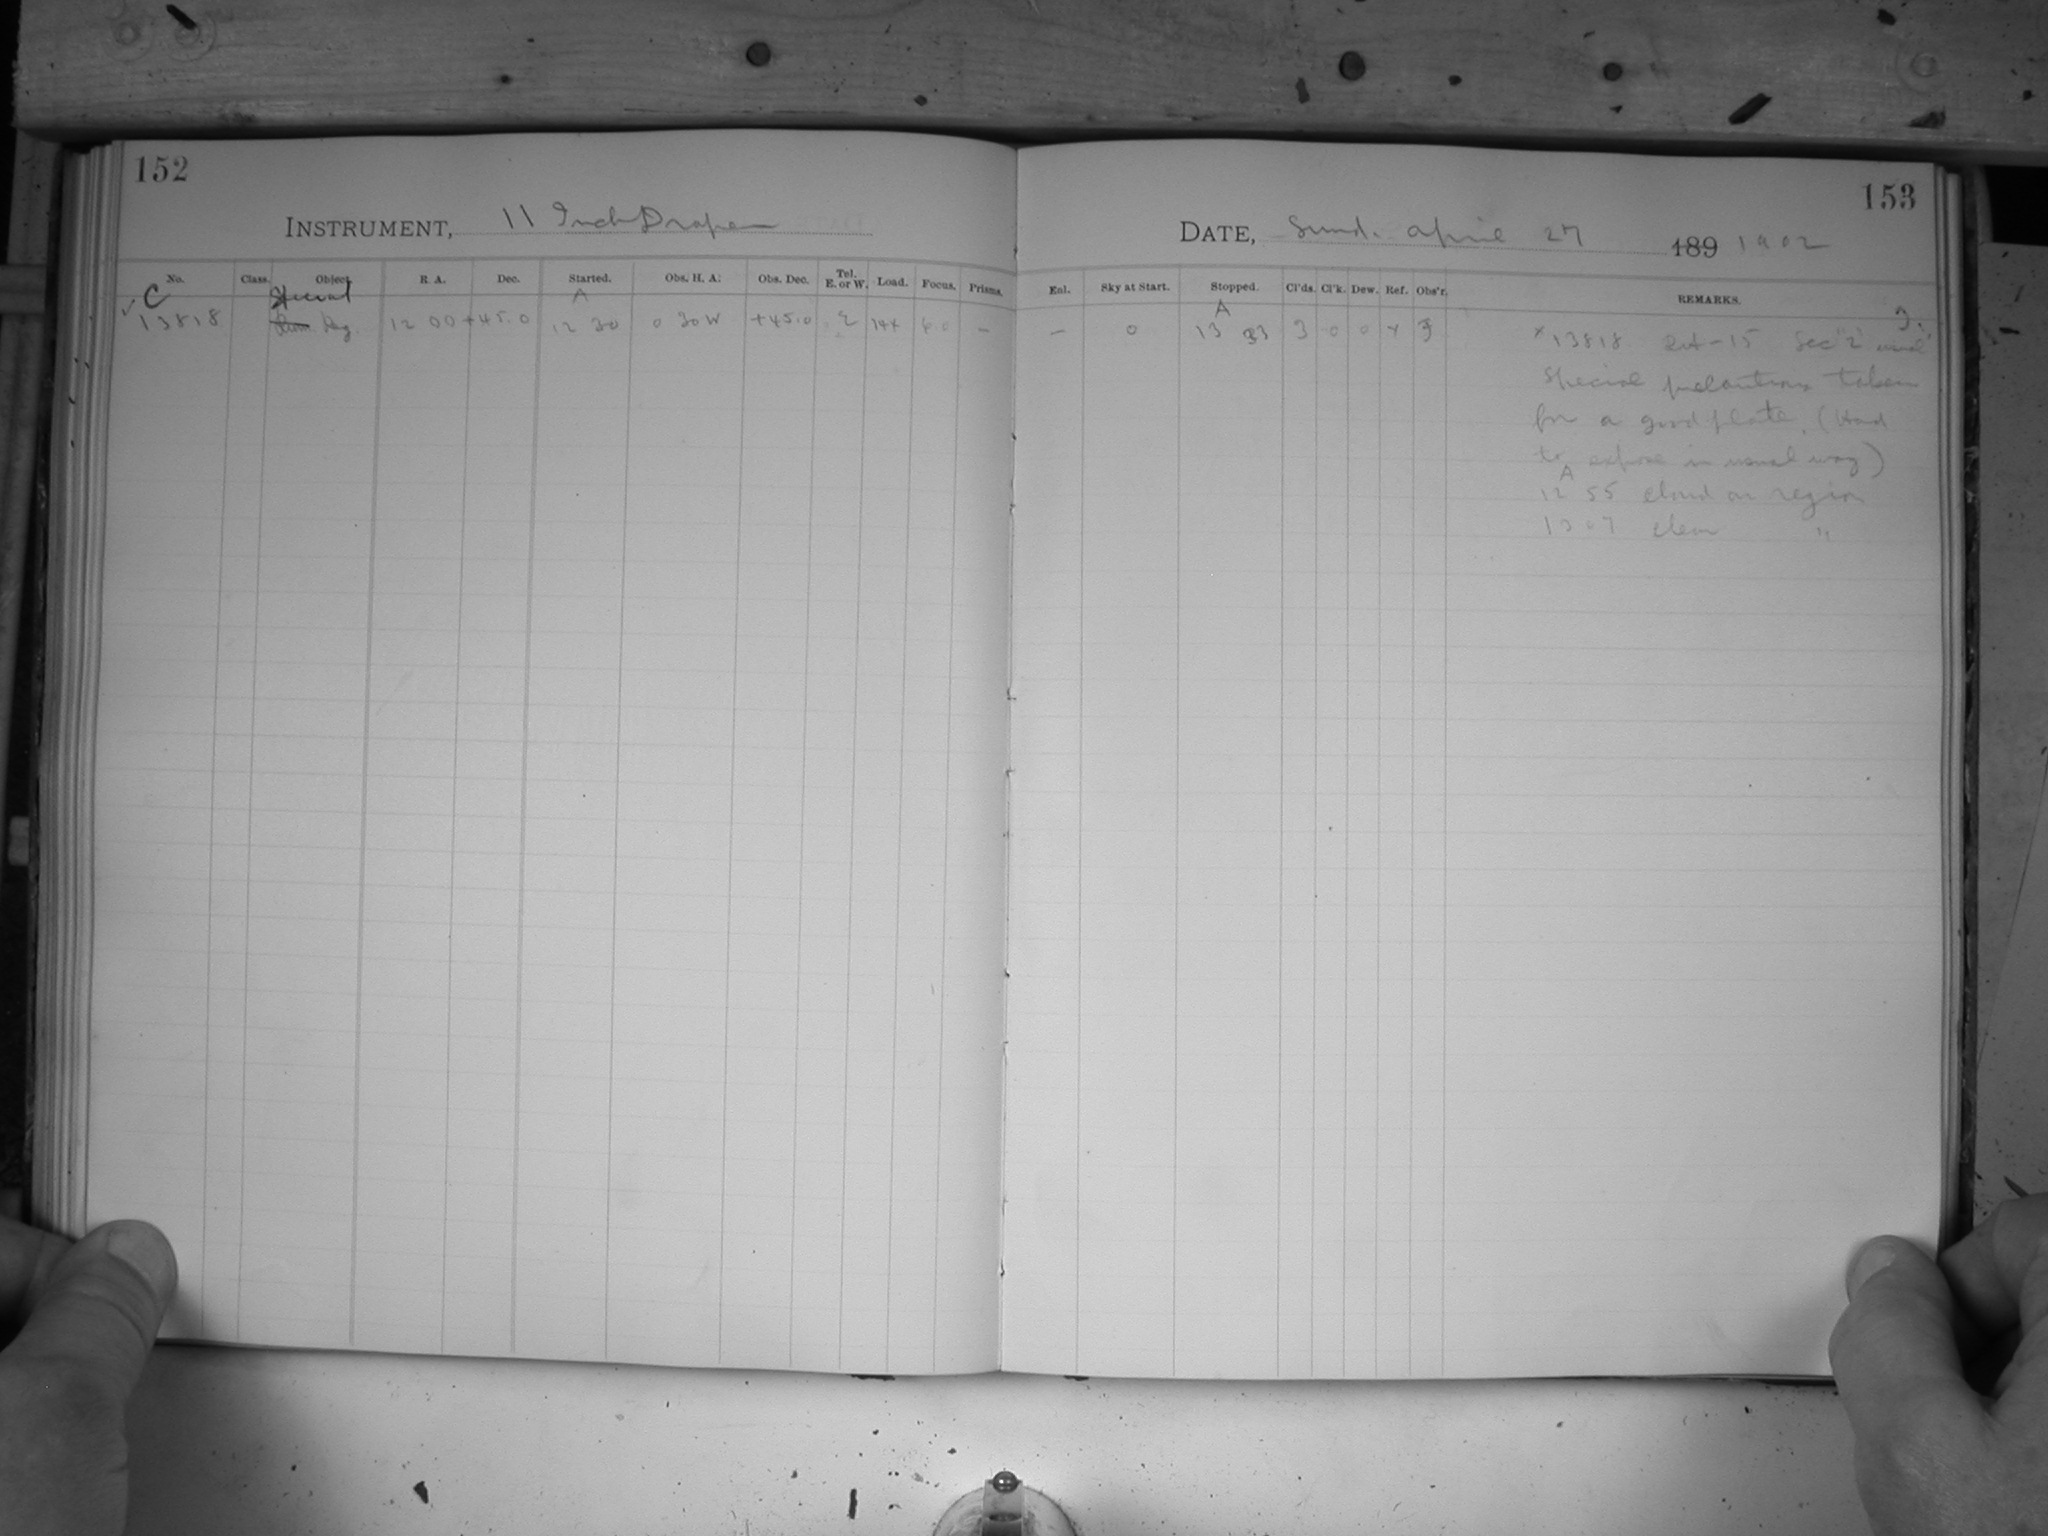 152
INSTRUMENT, 11 Inch Draper
No. Class. Object. R. A. Dec. Started. Obs. H. A. Obs. Dec. Tel. E. or W. Load. Focus. Prisms.
C Special A
13818 Reg. 12 00 +45.0 12 30 0 30 W +45.0 E 144 6.0 –
153
DATE, Sund. April 27 189 1902
Enl. Sky at Start. Stopped. Cl'ds. Cl'k. Dew. Ref. Obs'r. REMARKS.
A
– 0 13 33 3 0 0 × 13818 -15 Sec
Special precautions taken
for a good plate. (Had
to expose in usual way)
A
12 55 cloud on region
13 07 clear "